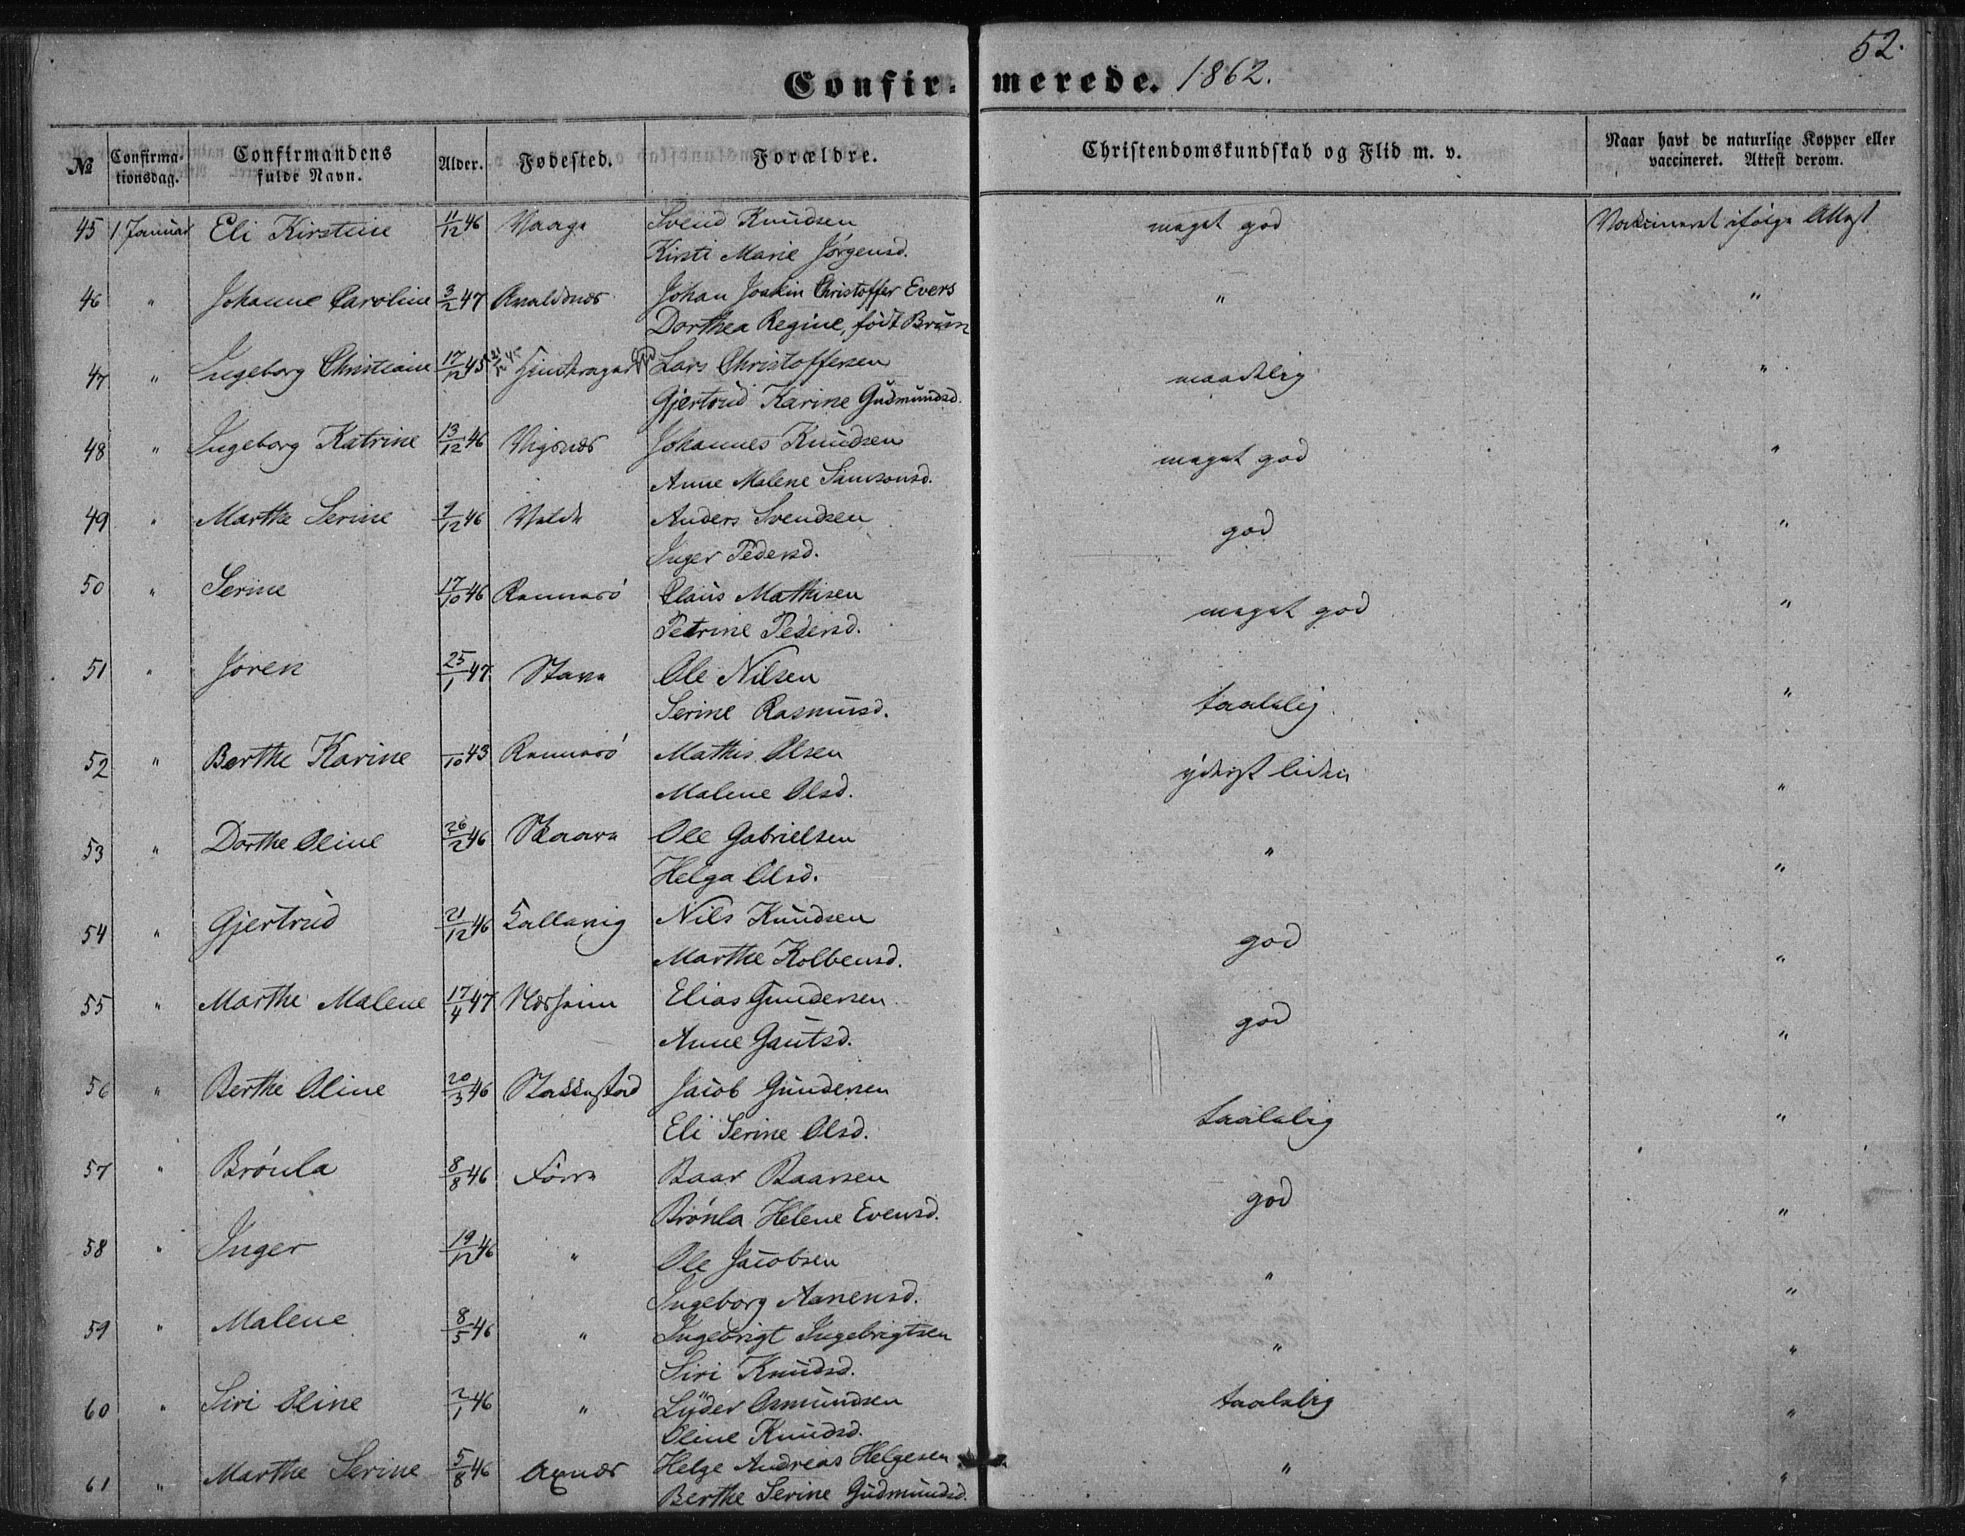 52.
Confir- merede. 1862.
№ Confirma-tionsdag. Confirmandens fulde Navn. Alder. Fødested. Forældre. Christendomskundskab og Flid m. v. Naar havt de naturlige Kopper eller vaccineret. Attest derom.
45 1 Januar Eli Kirstine 11/12 46 Vaage Svend Knudsen meget god Vaccineret ifølge Attest
Kirsti Marie Jørgensd.
46 " Johanne Caroline 3/2 47 Avaldsnæs Johan Joakin Christoffer Evers " "
Dorthea Regine, født Brun
47 " Ingeborg Christiane 17/12 45 Lars Christoffersen maadelig "
Gjertrud Karine Gudmundsd.
48 " Ingeborg Katrine 13/12 46 Vigsnæs Johannes Knudsen meget god "
Anne Malene Samsonsd.
49 " Marthe Serine 9/12 46 Anders Svendsen god "
Inger Pedersd.
50 " Serine 17/10 46 Rennarø Claus Mathisen meget god "
Petrine Pedersd.
51 " Joren 25/1 47 Stava Ole Nilsen taalelig "
Serine Rasmusd.
52 " Berthe Karine /10 43 Rennarø Mathis Olsen yderst liden "
Malene Olsd.
53 " Dorthe Oline 26/2 46 Skaare Ole Gabrielsen " "
Helga Olsd.
54 " Gjertrud 21/12 46 Sallavig Nils Knudsen god "
Marthe Kolbensd.
55 " Marthe Malene 17/4 47 Nærheim Elias Gundersen god "
Anne Gautsd.
56 " Berthe Oline 20/3 46 Stakkestad Jacob Gundersen taalelig "
Eli Serine Olsd.
57 " Brønla 8/8 46 Førre Baar Baarsen god "
Brønla Helene Evensd.
58 " Inger 19/12 46 " Ole Jacobsen " "
Ingeborg Aanensd.
59 " Malene 8/5 46 " Ingebrigt Ingebrigtsen " "
Siri Knudsd.
60 " Siri Oline 2/1 46 " Lüder Osmundsen taalelig "
Oline Knudsd.
61 " Marthe Serine 5/8 46 Axnæs Helge Andreas Helgesen " "
Berthe Serine Gudmundsd.